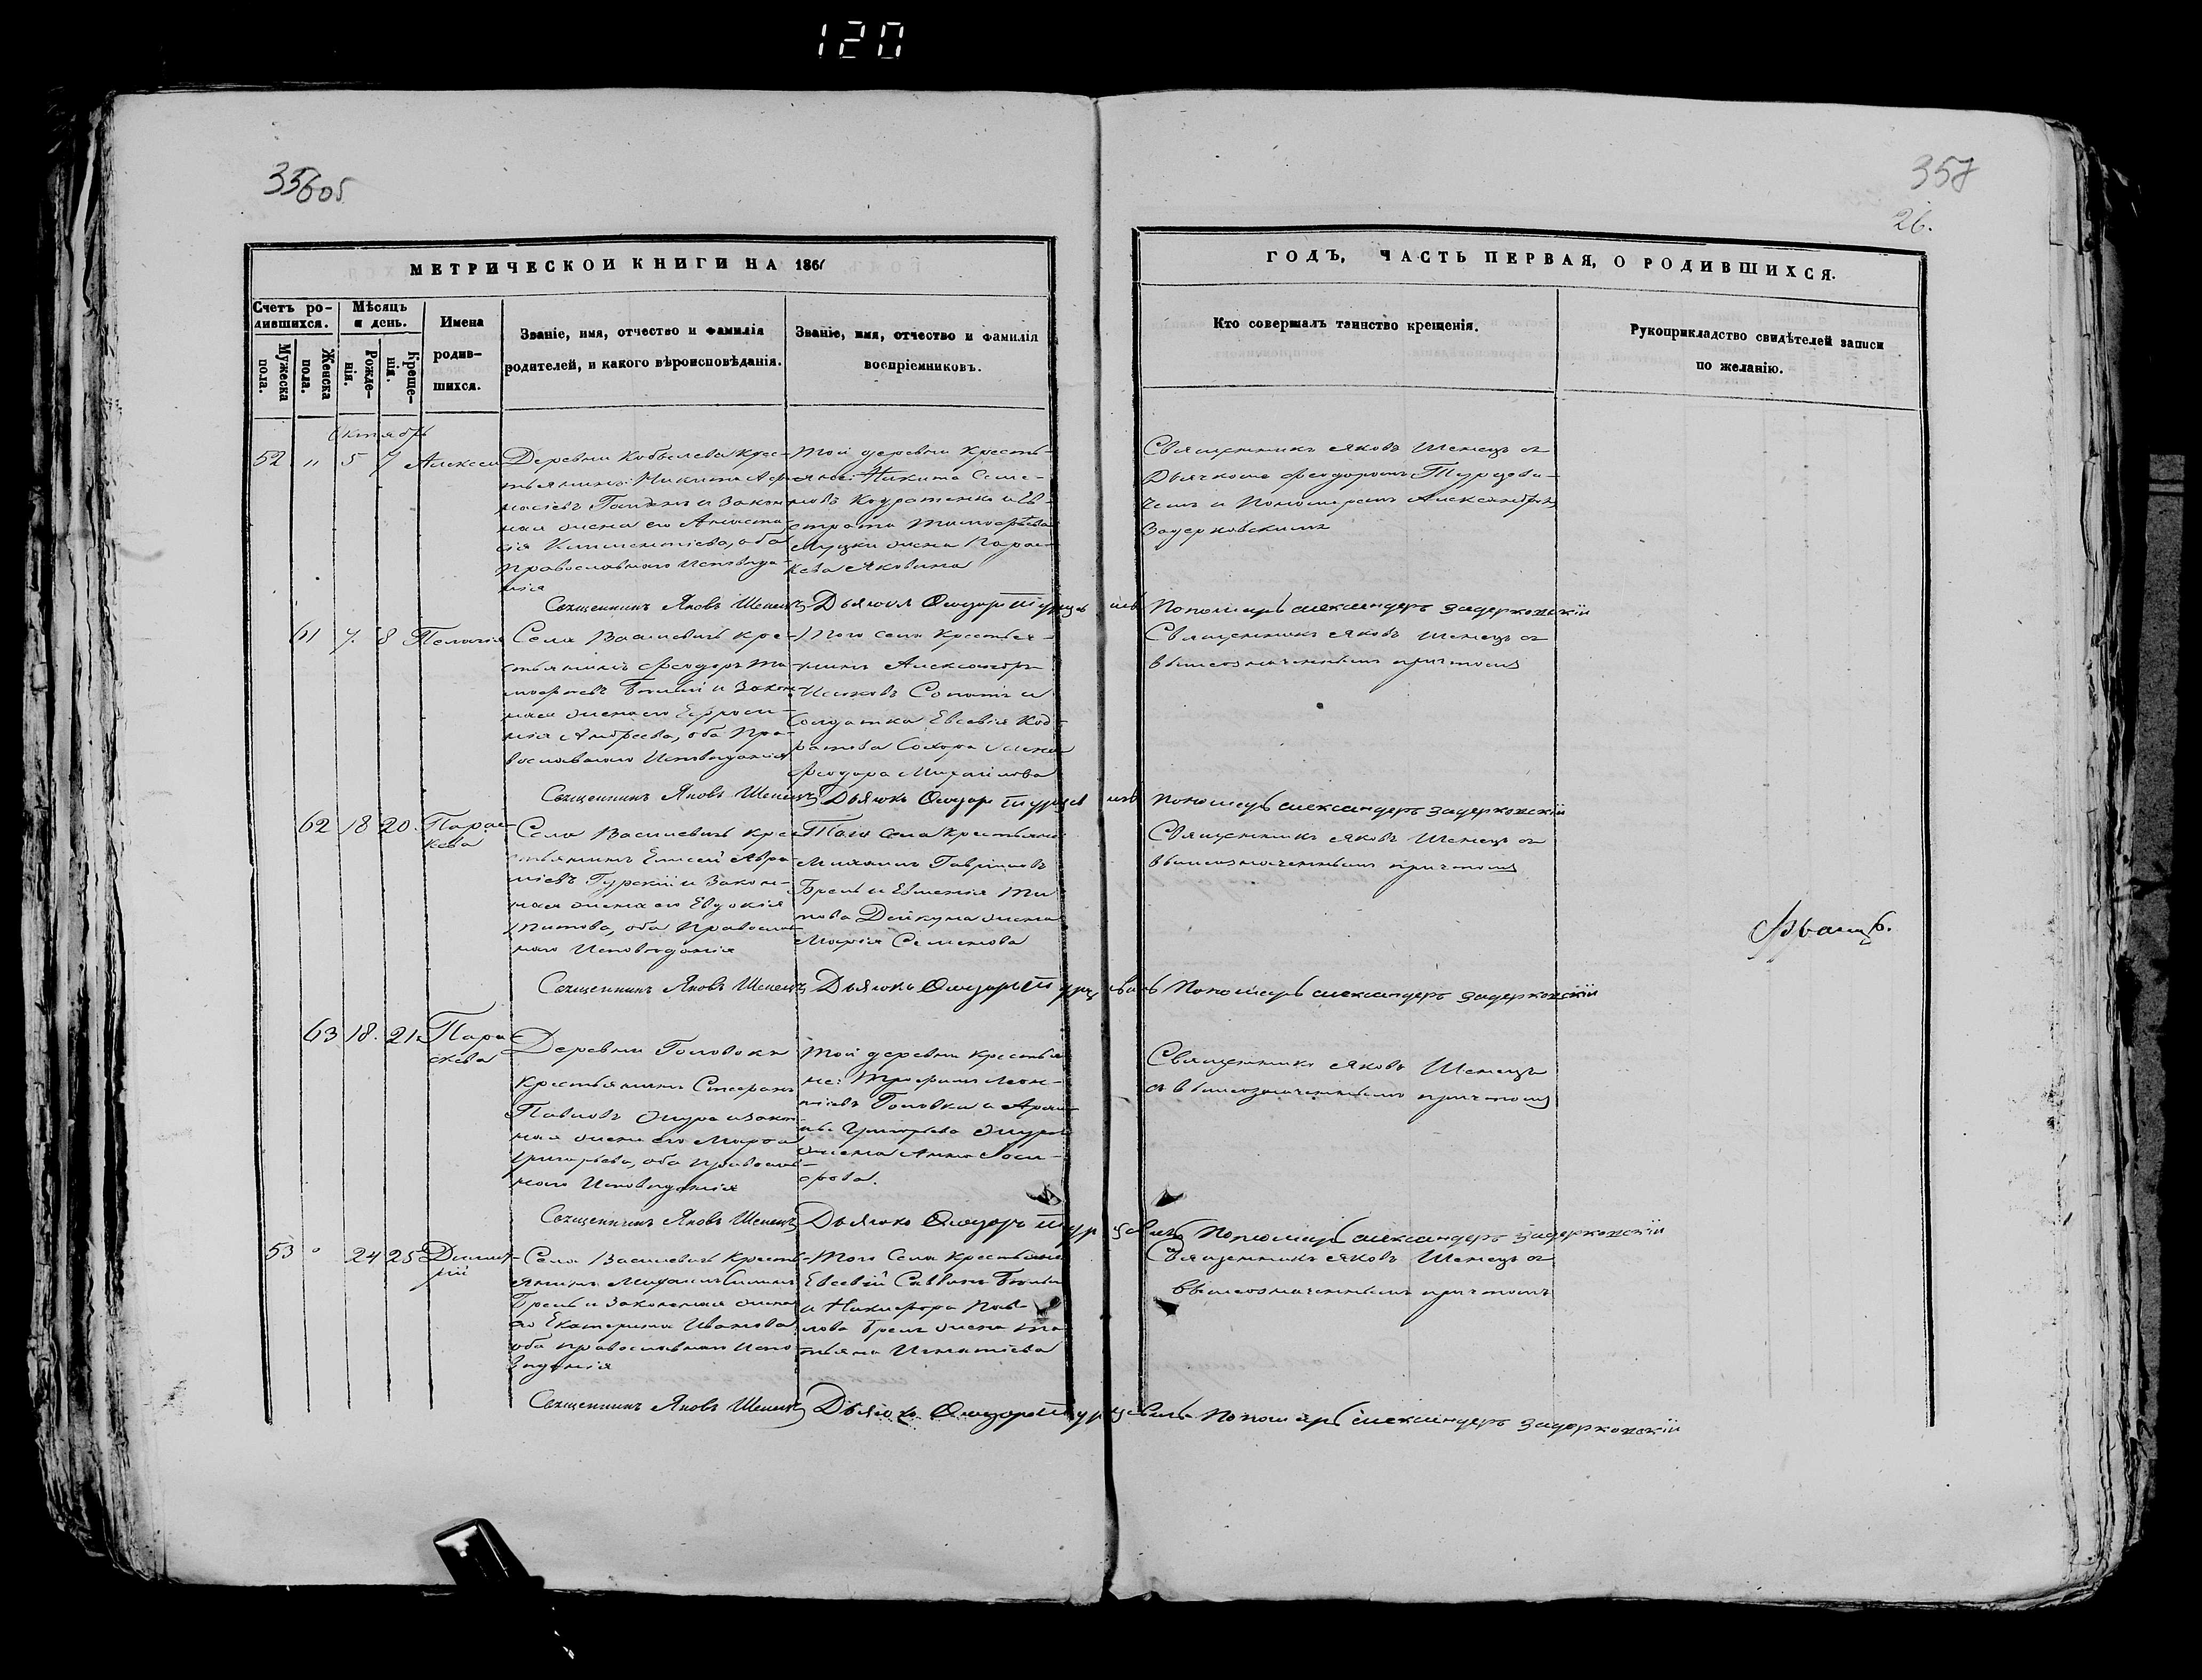 120
356об
357
26.
МЕТРИЧЕСКОЙ КНИГИ НА 1861
ГОДЪ, ЧАСТЬ ПЕРВАЯ, О РОДИВШИХСЯ.
Счетъ ро-
дившихся.
Мужеска
пола.
Женска
пола.
Мѣсяцъ
и день.
Рожде-
нія.
Креще-
нія.
Имена
родив-
шихся.
Званіе, имя, отчество и фамилія
родителей, и какого вѣроисповѣданія.
Званіе, имя, отчество и фамилія
воспріемниковъ.
Кто совершалъ таинство крещенія.
Рукоприкладство свидѣтелей записи
по желанію.
Октябрь
52 " 5 7 Алексей
Деревни Кобылева крес-
тьянинъ Никита
и закон
ная жена его Анаста
сія Климентіева, оба
православнаго исповѣда-
нія
Той деревни кресть-
яне: Никита Семе-
новъ Кодратенко и Ев-
страта Тимофѣева
жена Парас-
кева Яковлева
Священникъ Яковъ Шенецъ съ
Дьячкомъ Феодоромъ Турцеви-
чемъ и Пономаремъ Александромъ
Задерковскимъ
Священникъ Яковъ Шенецъ Дьячокъ Феодоръ Турцевичъ Пономарь Александеръ Задерковскій
61 7. 8 Пелагія
Села Василевичь кре-
стьянинъ Феодоръ Ти
мофеевъ и закон
ная жена его Ефроси-
нія Андреева, оба пра-
вославнаго исповѣданія
Того села крестья-
нинъ Александръ
и
солдатка Евсевія Код-
ратова жена
Феодора Михайлова
Священникъ Яковъ Шенецъ съ
вышеозначеннымъ причтомъ
Священникъ Яковъ Шенецъ Дьячокъ Феодоръ Турцевичъ Пономарь Александеръ Задерковскій
62 18 20. Парас-
кева
Села Василевичь кре
стьянинъ Елисей
Гурскій и закон-
ная жена его Евдокія
Титова, оба православ
наго исповѣданія
Того села крестьяне:
Михаилъ Гавріиловъ
Брель и Евменія Ти
това Дейкуна жена
Марія Семенова
Священникъ Яковъ Шенецъ съ
вышеозначеннымъ причтомъ
Священникъ Яковъ Шенецъ Дьячокъ Феодоръ Турцевичъ Пономарь Александеръ Задерковскій
63 18. 21. Пара
скева
Деревни Головокъ
крестьянинъ Стефанъ
Павловъ и закон
ная жена его Марфа
Григорьева, оба православ
наго исповѣданія
Той деревни крестья
не: Трофимъ Леон-
тіевъ Головка и
Григорьева
жена Анна Іоси-
фова.
Священникъ Яковъ Шенецъ
съ вышеозначеннымъ причтомъ
Священникъ Яковъ Шенецъ Дьячокъ Феодоръ Турцевичъ Пономарь Александеръ Задерковскій
53 " 24 25 Димит-
рій
Села Василевичь кресть
янинъ Михаилъ
Брель и законная жена
его Екатерина Иванова
оба православнаго испо
вѣданія
Того села крестьяне
Евсевій Саввинъ
и Никифора Пав-
лова Брель жена Та
тьяна Игнатіева
Священникъ Яковъ Шенецъ съ
вышеозначеннымъ причтомъ
Священникъ Яковъ Шенецъ Дьячокъ Феодоръ Турцевичъ Пономарь Александеръ Задерковскій